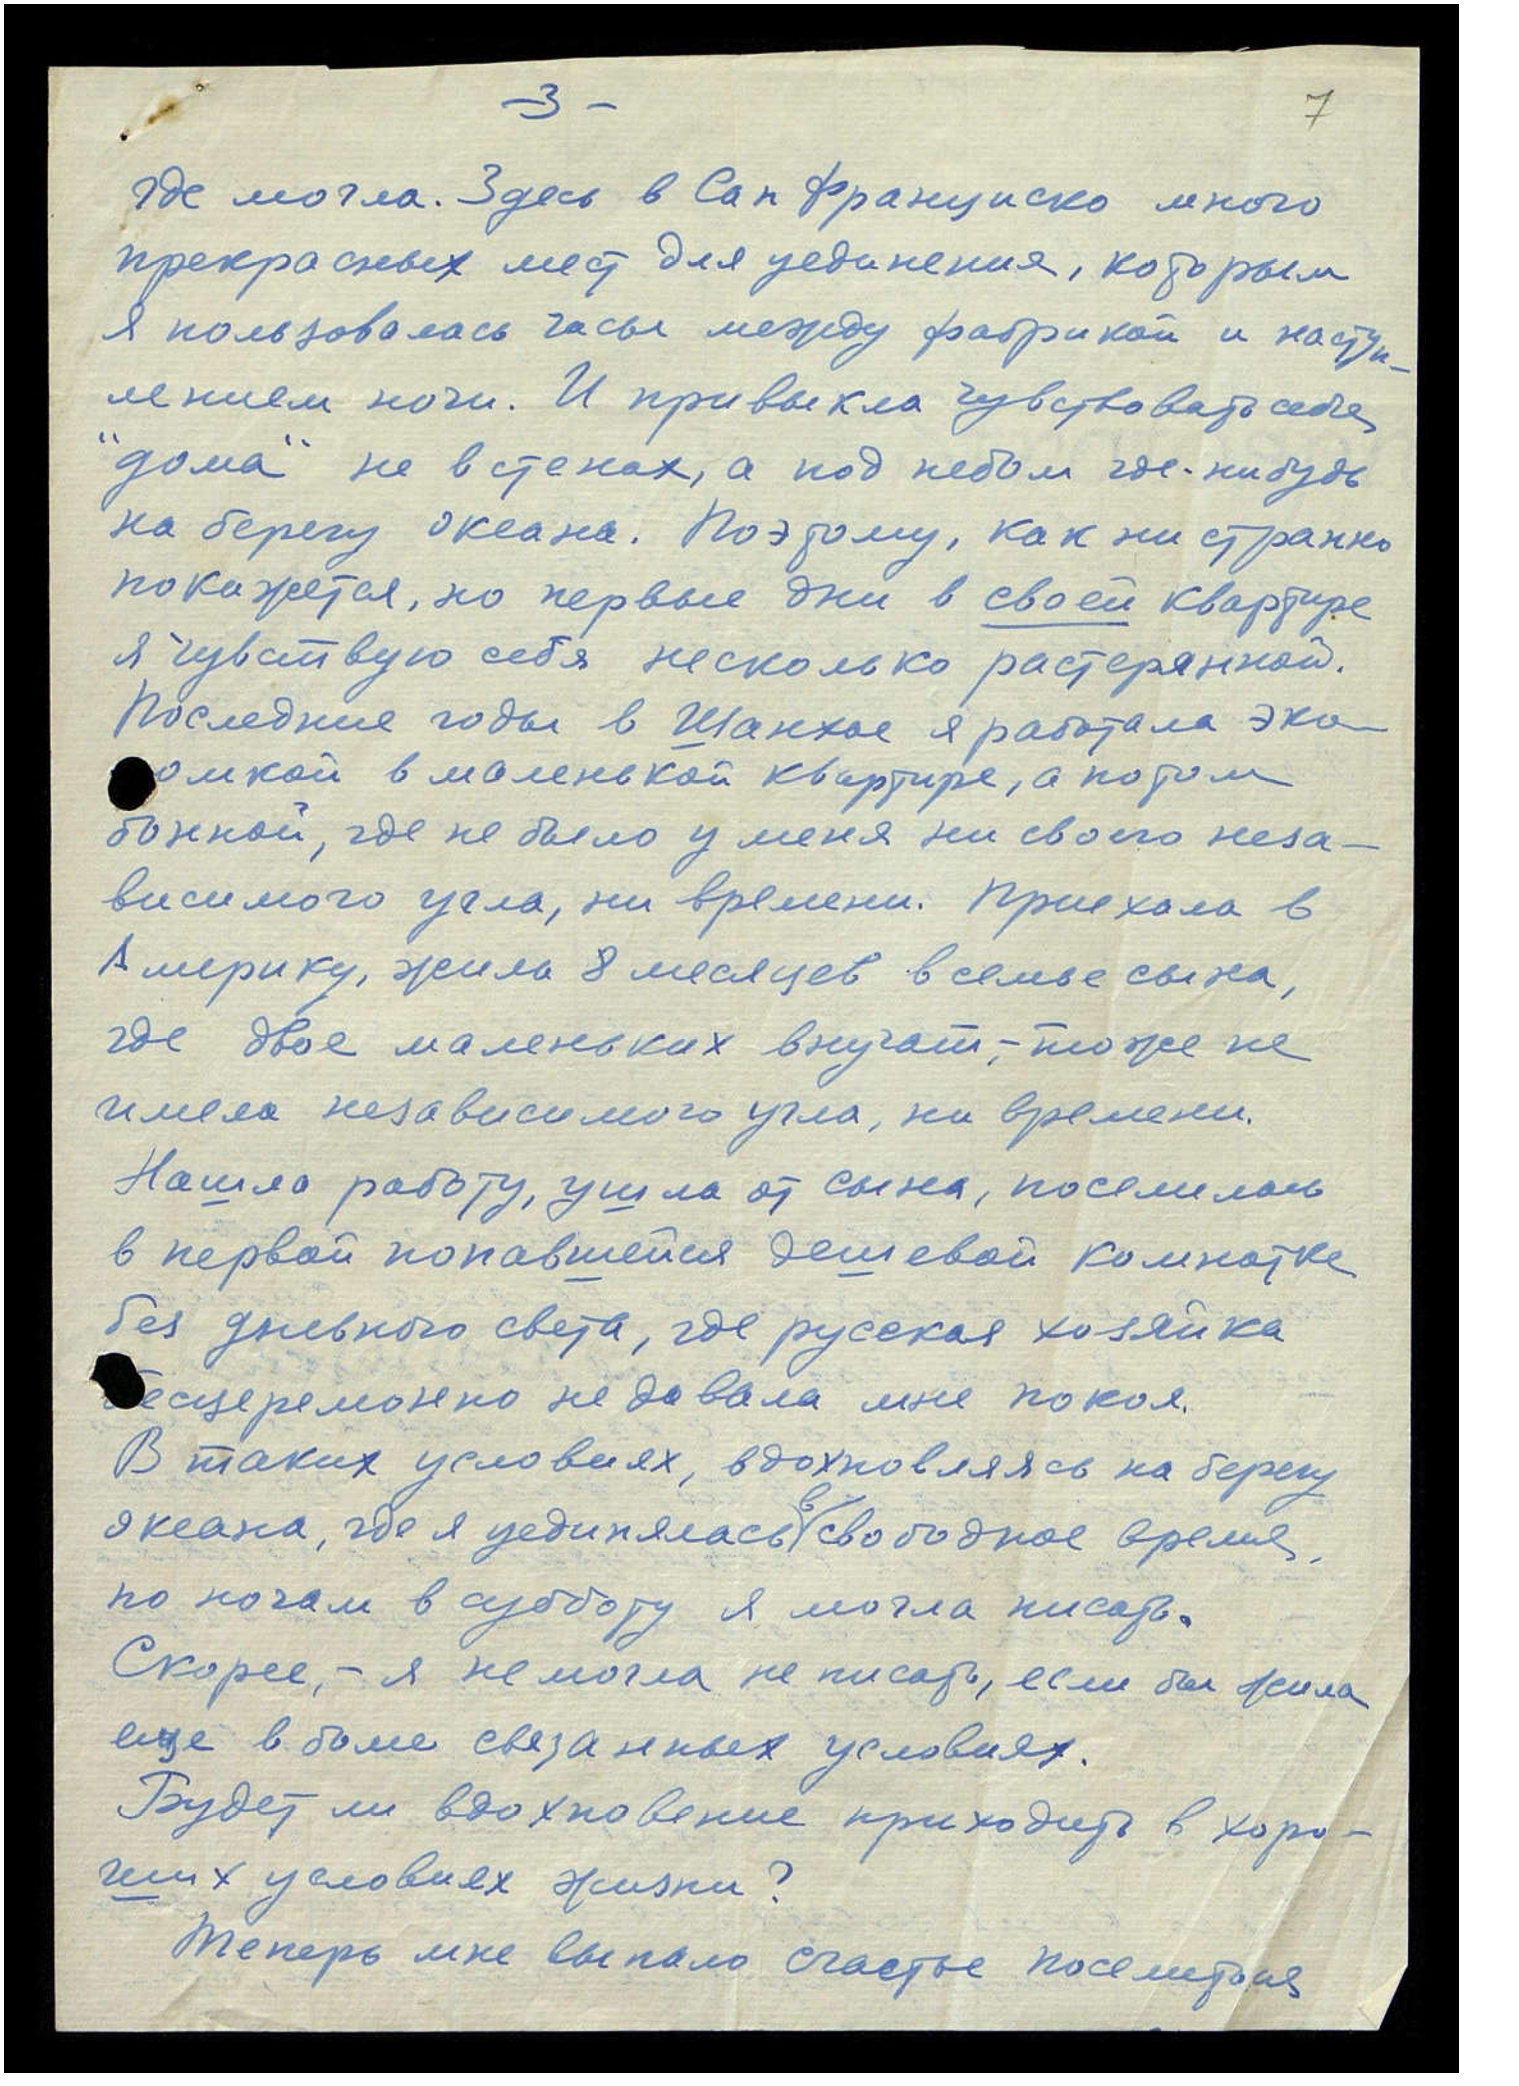 -3-
7
где могла. Здесь в Сан Франциско много
прекрасных мест для уединения, которым
я пользовалась часы между фабрикой и наступ-
лением ночи. И привыкла чувствовать себя
"дома" не в стенах, а под небом где-нибудь
на берегу океана. Поэтому, как ни странно
покажется, но первые дни в своей квартире
я чувствую себя несколько растерянной.
Последние годы в Шанхае я работала эко-
омкой в маленькой квартире, а потом
бонной, где не было у меня ни своего неза-
висимого угла, ни времени. Приехала в
Америку, жила 8 месяцев в семье сына,
где двое маленьких внучат,- тоже не
имела независимого угла, ни времени.
Нашла работу, ушла от сына, поселилась
в первой попавшейся дешевой комнатке
без дневного света, где русская хозяйка
бесцеремонно не давала мне покоя.
В таких условиях, вдохновляясь на берегу
океана, где я уединялась в свободное время,
по ночам в субботу я могла писать.
Скорее,- я не могла не писать, если бы жила
еще в более связанных условиях.
Будет ли вдохновение приходить в хоро-
ших условиях жизни?
Теперь мне выпало счастье поселиться